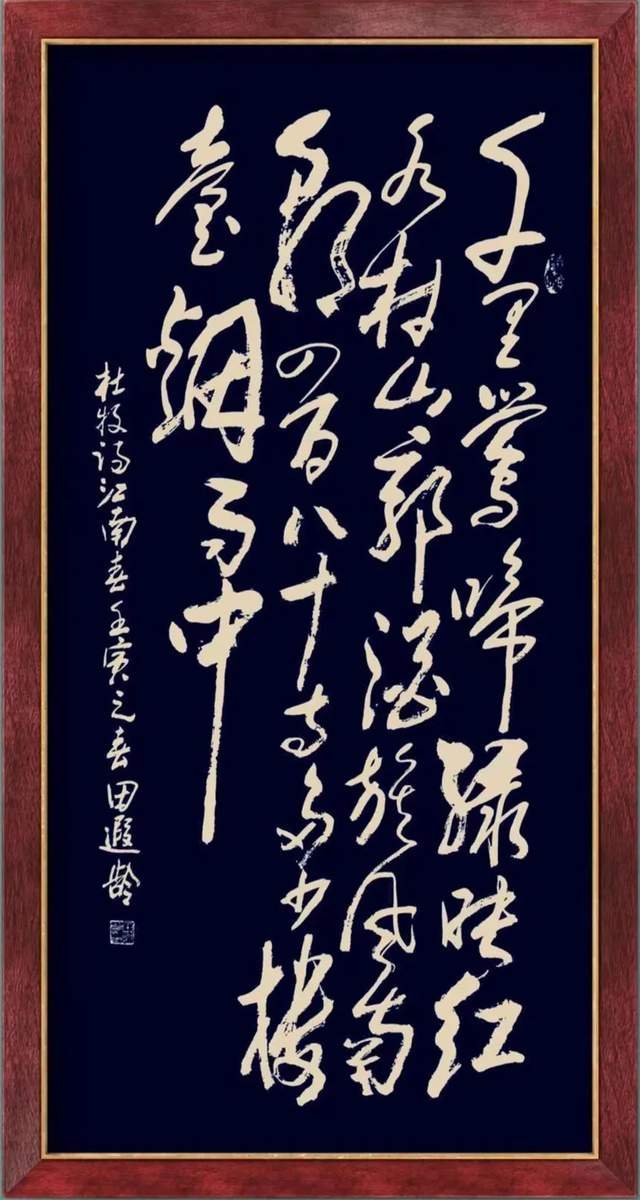 千里鶯啼綠映紅
水村山郭酒旗風南
朝四百八十寺多少樓
臺烟雨中
杜牧詩江南春壬寅之春田遐齡